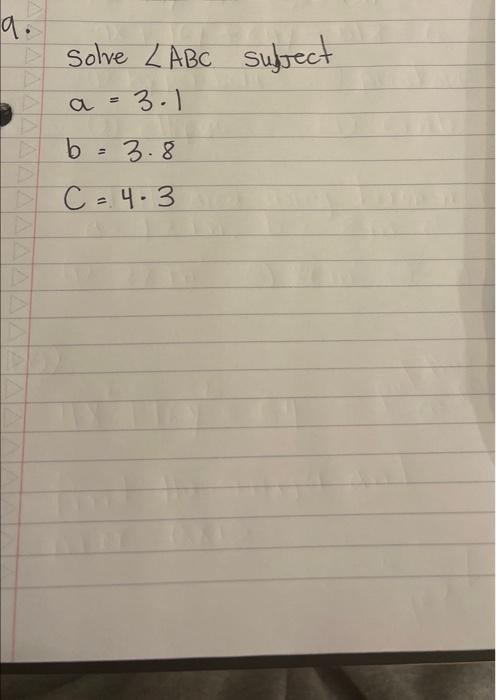 9.
Solve ∠ABC subject
a = 3.1
b = 3.8
C = 4.3